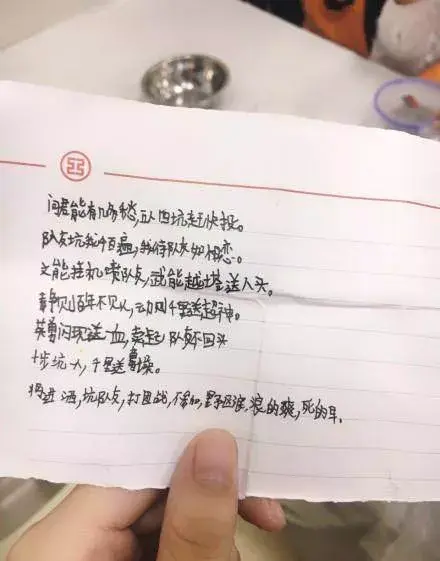 问君能有几多愁,五人四坑赶快投。
队友坑我千百遍,我待队友如初恋。
文能挂机喷队友,武能越塔送人头。
静则百年不见人,动则千里送超神。
英勇闪现送一血,卖起队友不回头
十步坑一人,千里送
将进酒,坑队友,打团战,不参加,野区浪,浪的爽,死的早。